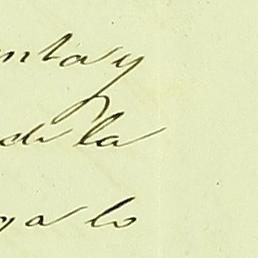 nta y
de la
ga lo